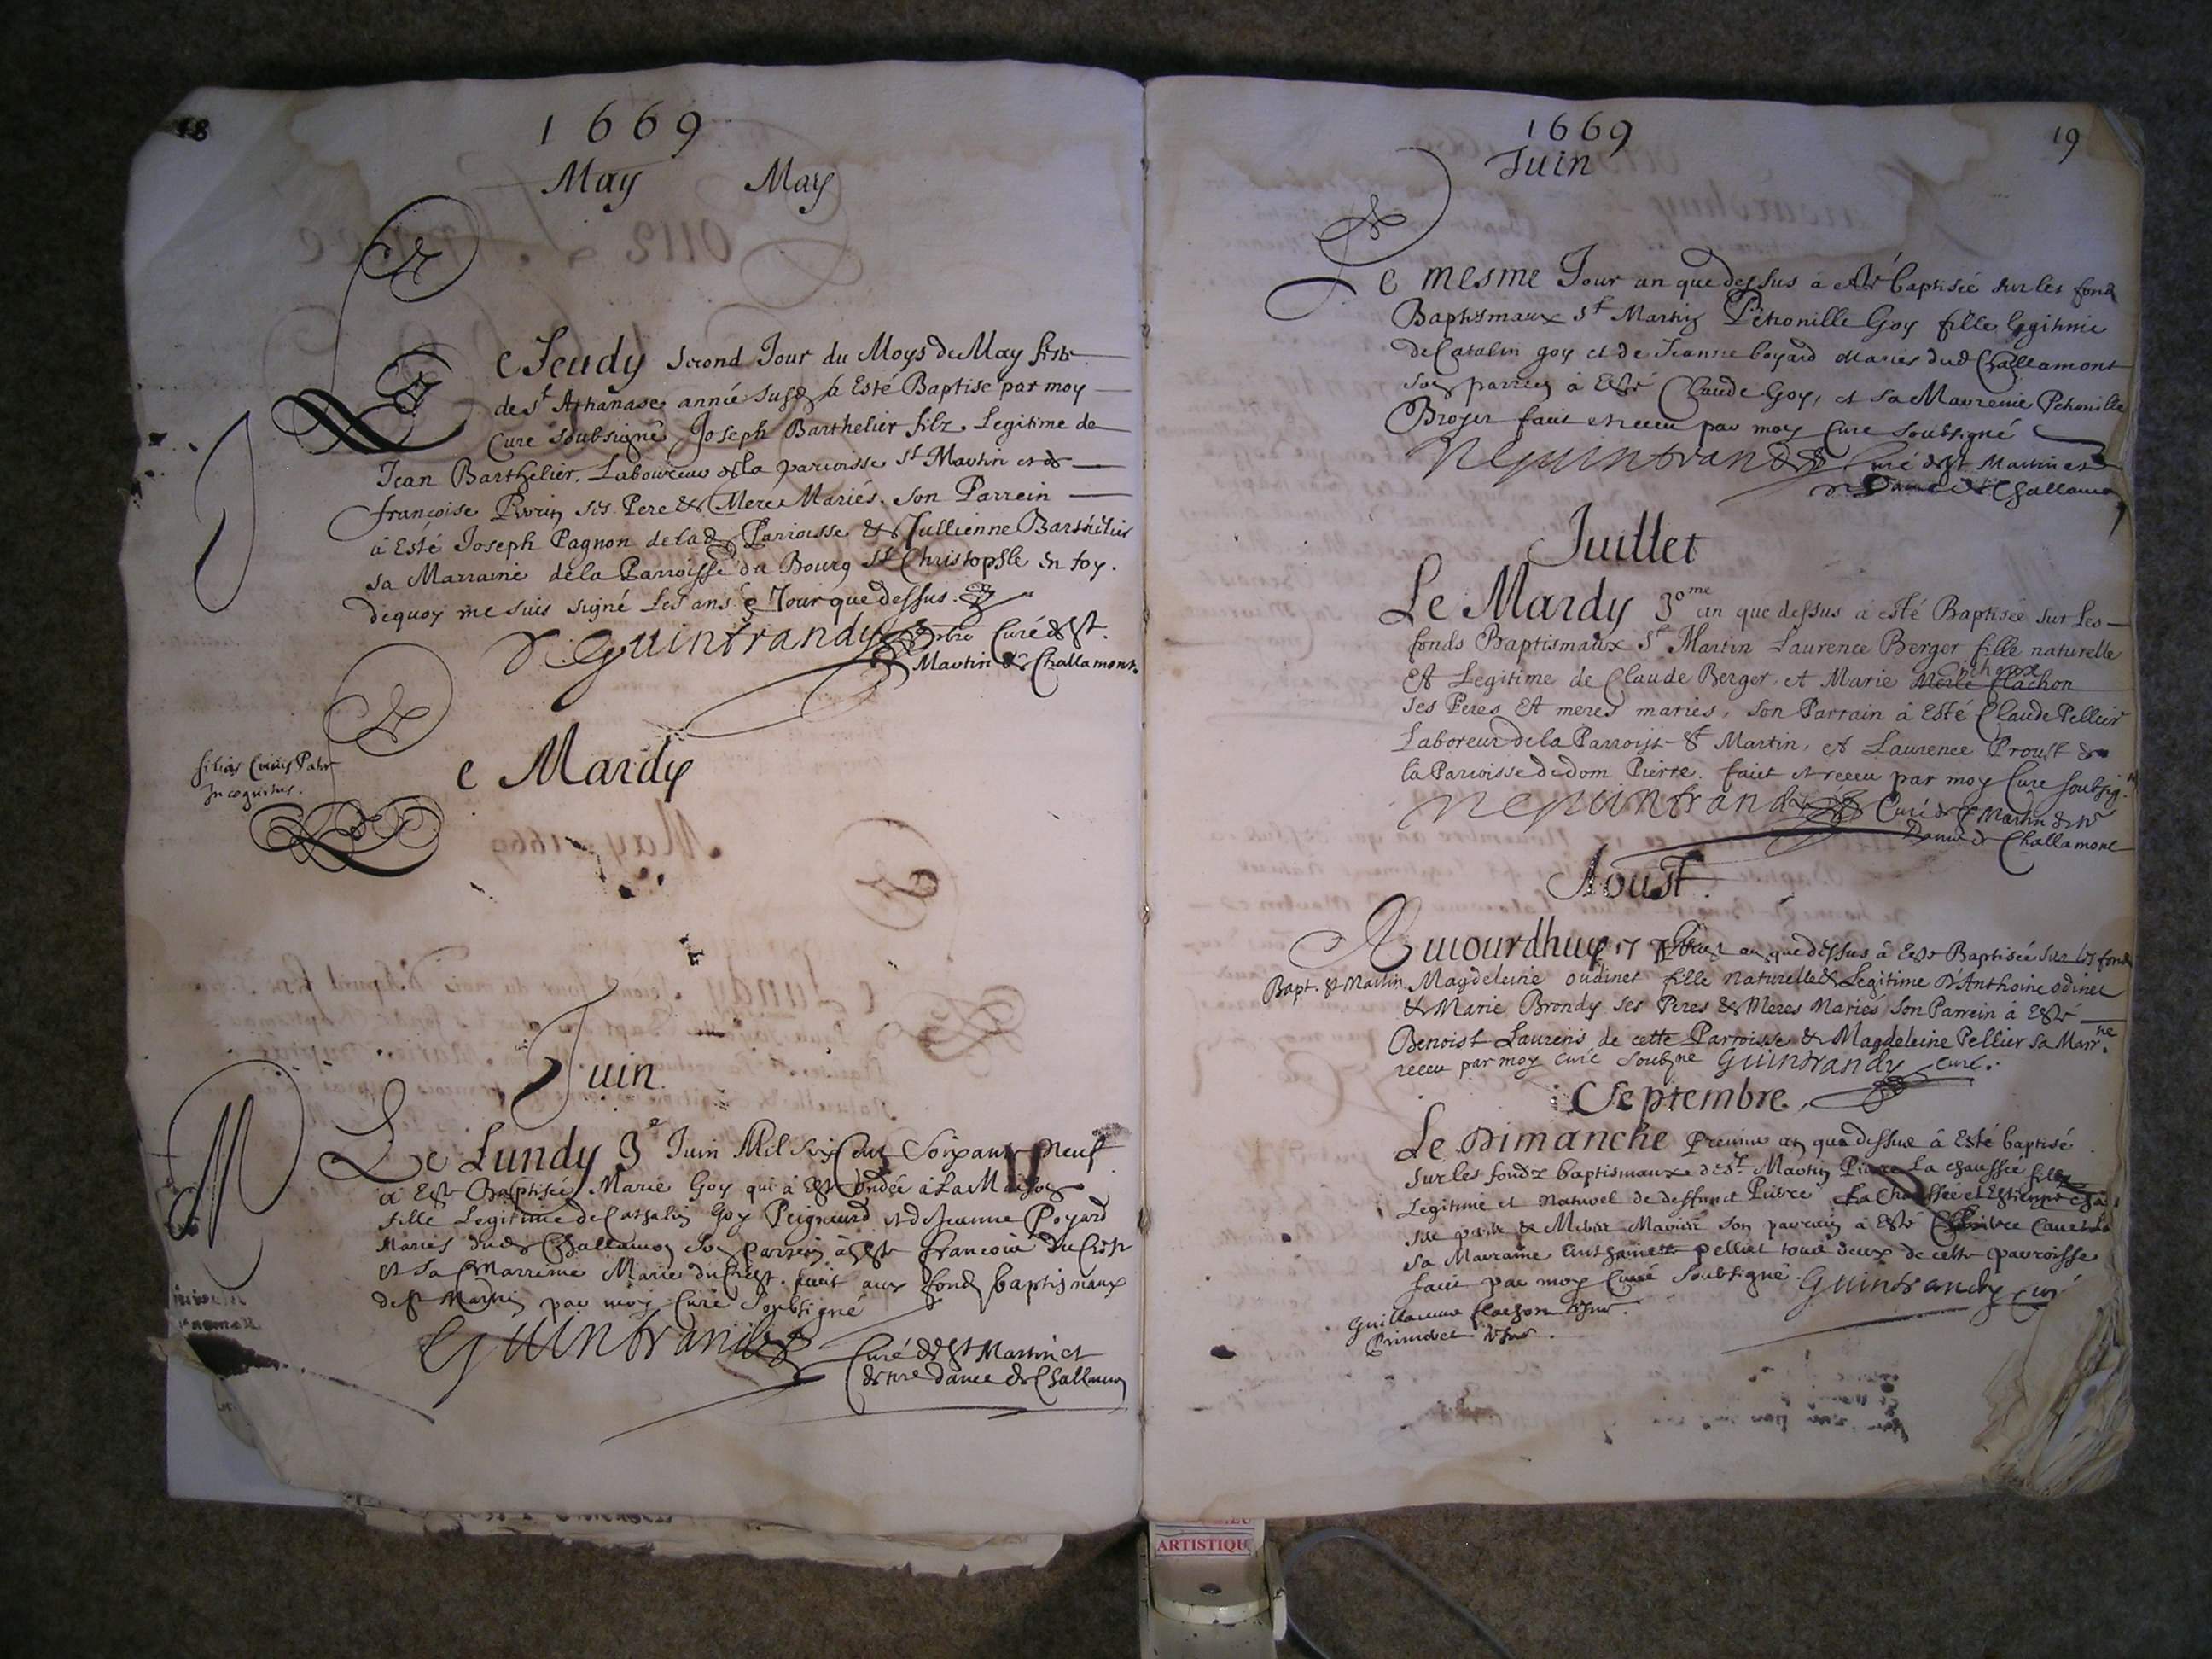 18
1669
May May
Le Jeudy second Jour du Moys de May feste
de st Athanase année susd à Esté Baptise par moy
Curé soubsigné Joseph Barthelier filz Legitime de
Jean Barthelier Laboureur de la parroisse st Martin et de
françoise Pivrin ses Pere & Mere Mariés. son Parrein
à Esté Joseph Pagnon de lad Parroisse & Jullienne Barthelier
sa Marraine de la Parroisse du Bourg St Christophle en foy.
dequoy me suis signé Les ans & Jour que dessus.
Guintrandy pbre Curé de St.
Martin de Challamont.
filius Cuius Pater
Incognitus.
Le Mardy
Juin.
Le Lundy 3e Juin Mil six Cent Soixante neuf
à Esté Baptisée Marie Goy qui à Esté ondée à La Maison
fille Legitime de Cathalin Goy Peigneurd et de Jeanne Boyard
Mariés dud Challamon son parrein à Esté francois du Crest
et sa Marreine Marie du Crest. fait aux fonds baptismaux
de St Martin par moy Curé soubsigné
Guintrandy
Curé de St Martin et
de nre dame de Challamon
19
1669
Juin
Le mesme Jour an que dessus à esté baptisée sur les fond
Baptismaux St Martin Petronille Goy fille legitime
de Catalin goy et de Jeanne boyard Mariés dud Challamont
son parrein à Esté Claude Goy, et sa Marreine Petronille
Broyer fait et receu par moy Curé soubsigné
Guintrandy Curé de St Martin et
Dame de Challamon
Juillet
Le Mardy 30me an que dessus a esté Baptisée sur Les
fonds Baptismaux St Martin Laurence Berger fille naturelle
Et Legitime de Claude Berger et Marie Flachon
ses Peres Et meres mariés, son Parrain à Esté Claude Pellier
Laboreur de la Parroisse St Martin, et Laurence Proust de
la Parroisse de dom Pierre. faict et receu par moy Curé soubsig.
Guintrandy Curé de St Martin & nre
Dame de Challamont
Aoust.
Aujourdhuy 17 an que dessus à Esté Baptisée sur les fonds
Bapt. St Martin Magdeleine oudinet fille naturelle & Legitime D'Anthoine odinet
& Marie Brondy ses Peres & Meres Mariés son Parrein à Esté
Benoist Laurens de cette Parroisse & Magdeleine Pellier sa Marr.ne
receu par moy curé soubsne Guintrandy curé.
Septembre
Le Dimanche Premier an que dessus à Esté baptisé
sur les fonds baptismaux de St. Martin Pierre La chaussee filz
Legitime et naturel de deffunct Pierre La Chaussée et Estienne
ses pere & Mere Mariés son parrein à Esté
sa Marraine Anthoinette pellier tous deux de cette parroisse
faict par moy Curé soubsigné. Guintrandy curé
Guillaume flachon